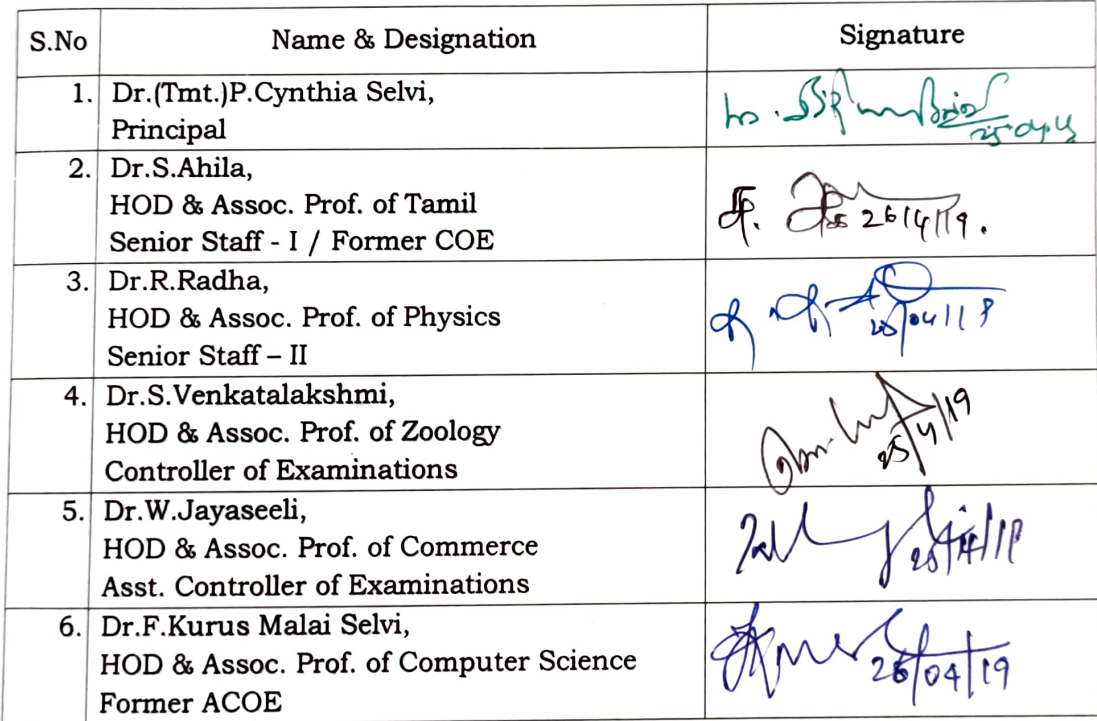 S.No Name & Designation Signature
1. Dr.(Tmt.)P.Cynthia Selvi,
Principal
2. Dr.S.Ahila,
HOD & Assoc. Prof. of Tamil
Senior Staff - I / Former COE
26/4/19.
3. Dr.R.Radha,
HOD & Assoc. Prof. of Physics
Senior Staff – II
4. Dr.S.Venkatalakshmi,
HOD & Assoc. Prof. of Zoology
Controller of Examinations
25/4/19
5. Dr.W.Jayaseeli,
HOD & Assoc. Prof. of Commerce
Asst. Controller of Examinations
6. Dr.F.Kurus Malai Selvi,
HOD & Assoc. Prof. of Computer Science
Former ACOE